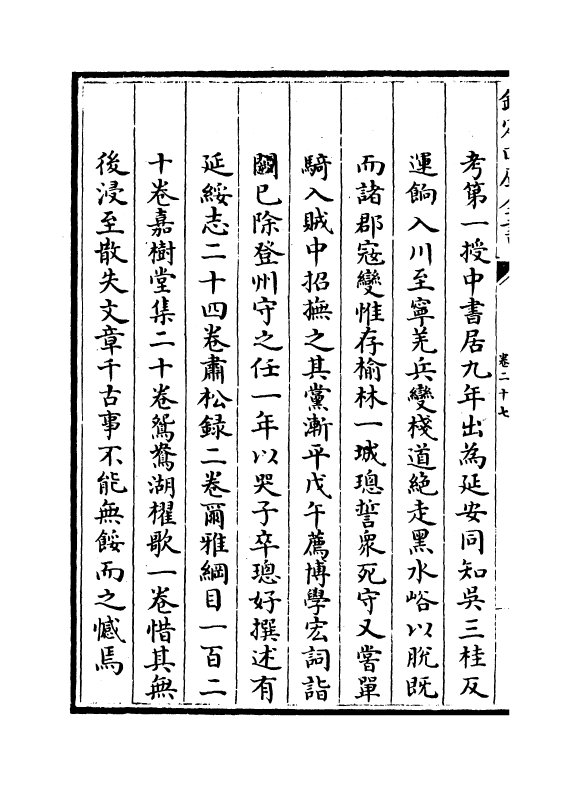 欽定四庫全書
卷二十七
考第一授中書居九年出為延安同知吳三桂反
運餉入川至寧羌兵變棧道絶走黑水峪以脱既
而諸郡寇變惟存榆林一城璁誓衆死守又嘗單
騎入賊中招撫之其黨漸平戊午薦博學宏詞詣
闕已除登州守之任一年以哭子卒璁好撰述有
延綏志二十四卷肅松録二卷爾雅綱目一百二
十卷嘉樹堂集二十卷鴛鴦湖櫂歌一卷惜其無
後浸至散失文章千古事不能無餒而之憾焉